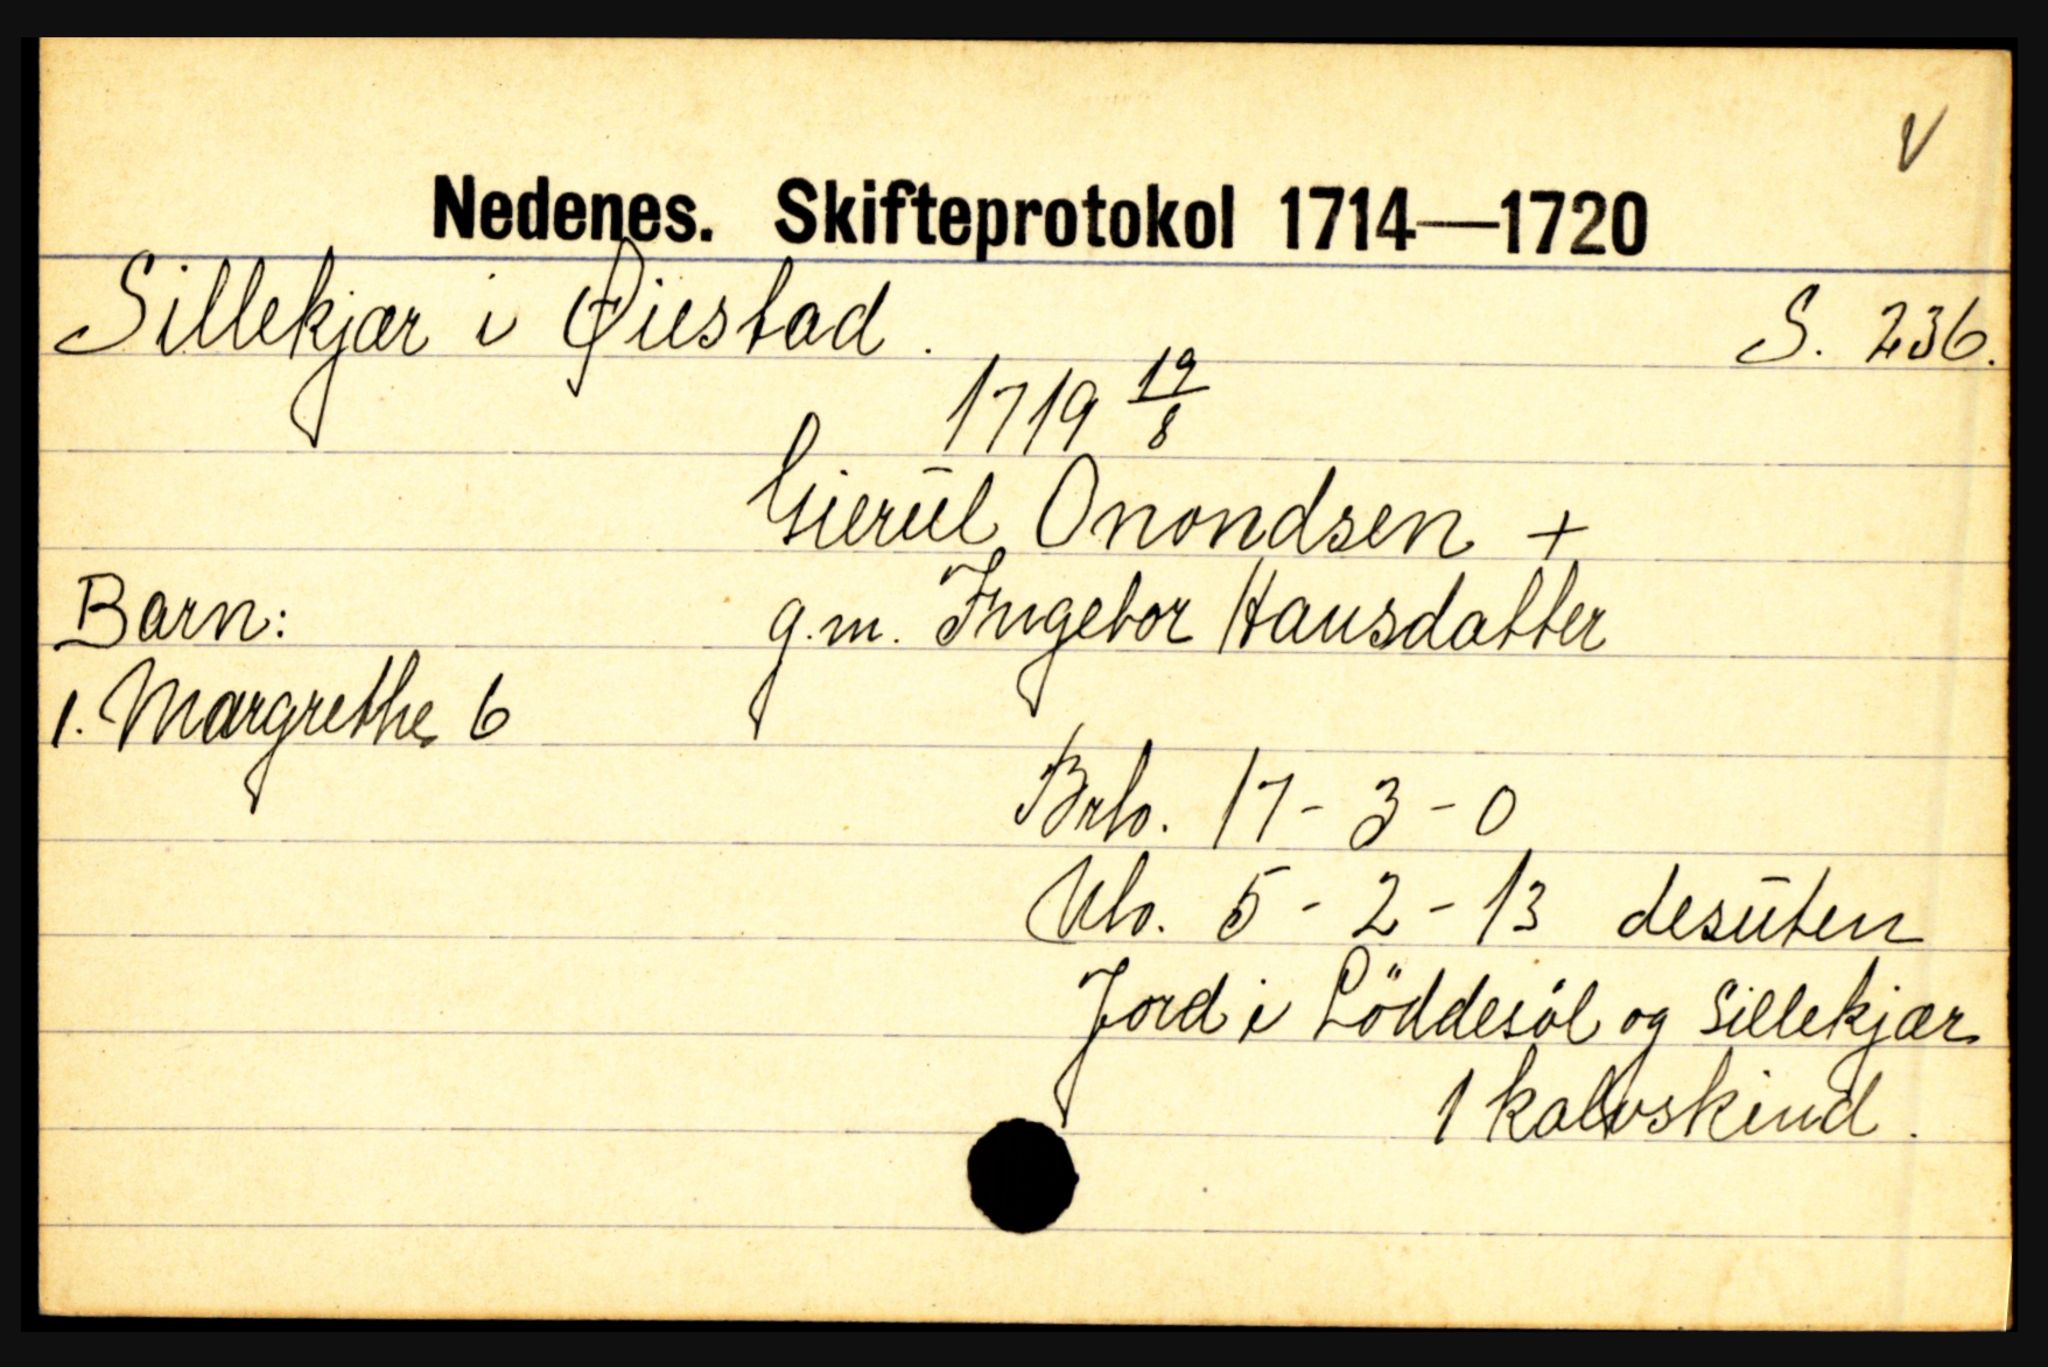 V
Nedenes. Skifteprotokol 1714—1720
Sillekjær i Øiestad. S. 236.
1719 19/8
Gierūl Onondsen +
Barn: g.m. Ingebor Hansdatter
1. Margrethe 6
Brb. 17 - 3 - 0
Nb. 5 - 2 - 13 desūten
Jord i Löddesöl og Sillekjær
1 kalvskind.